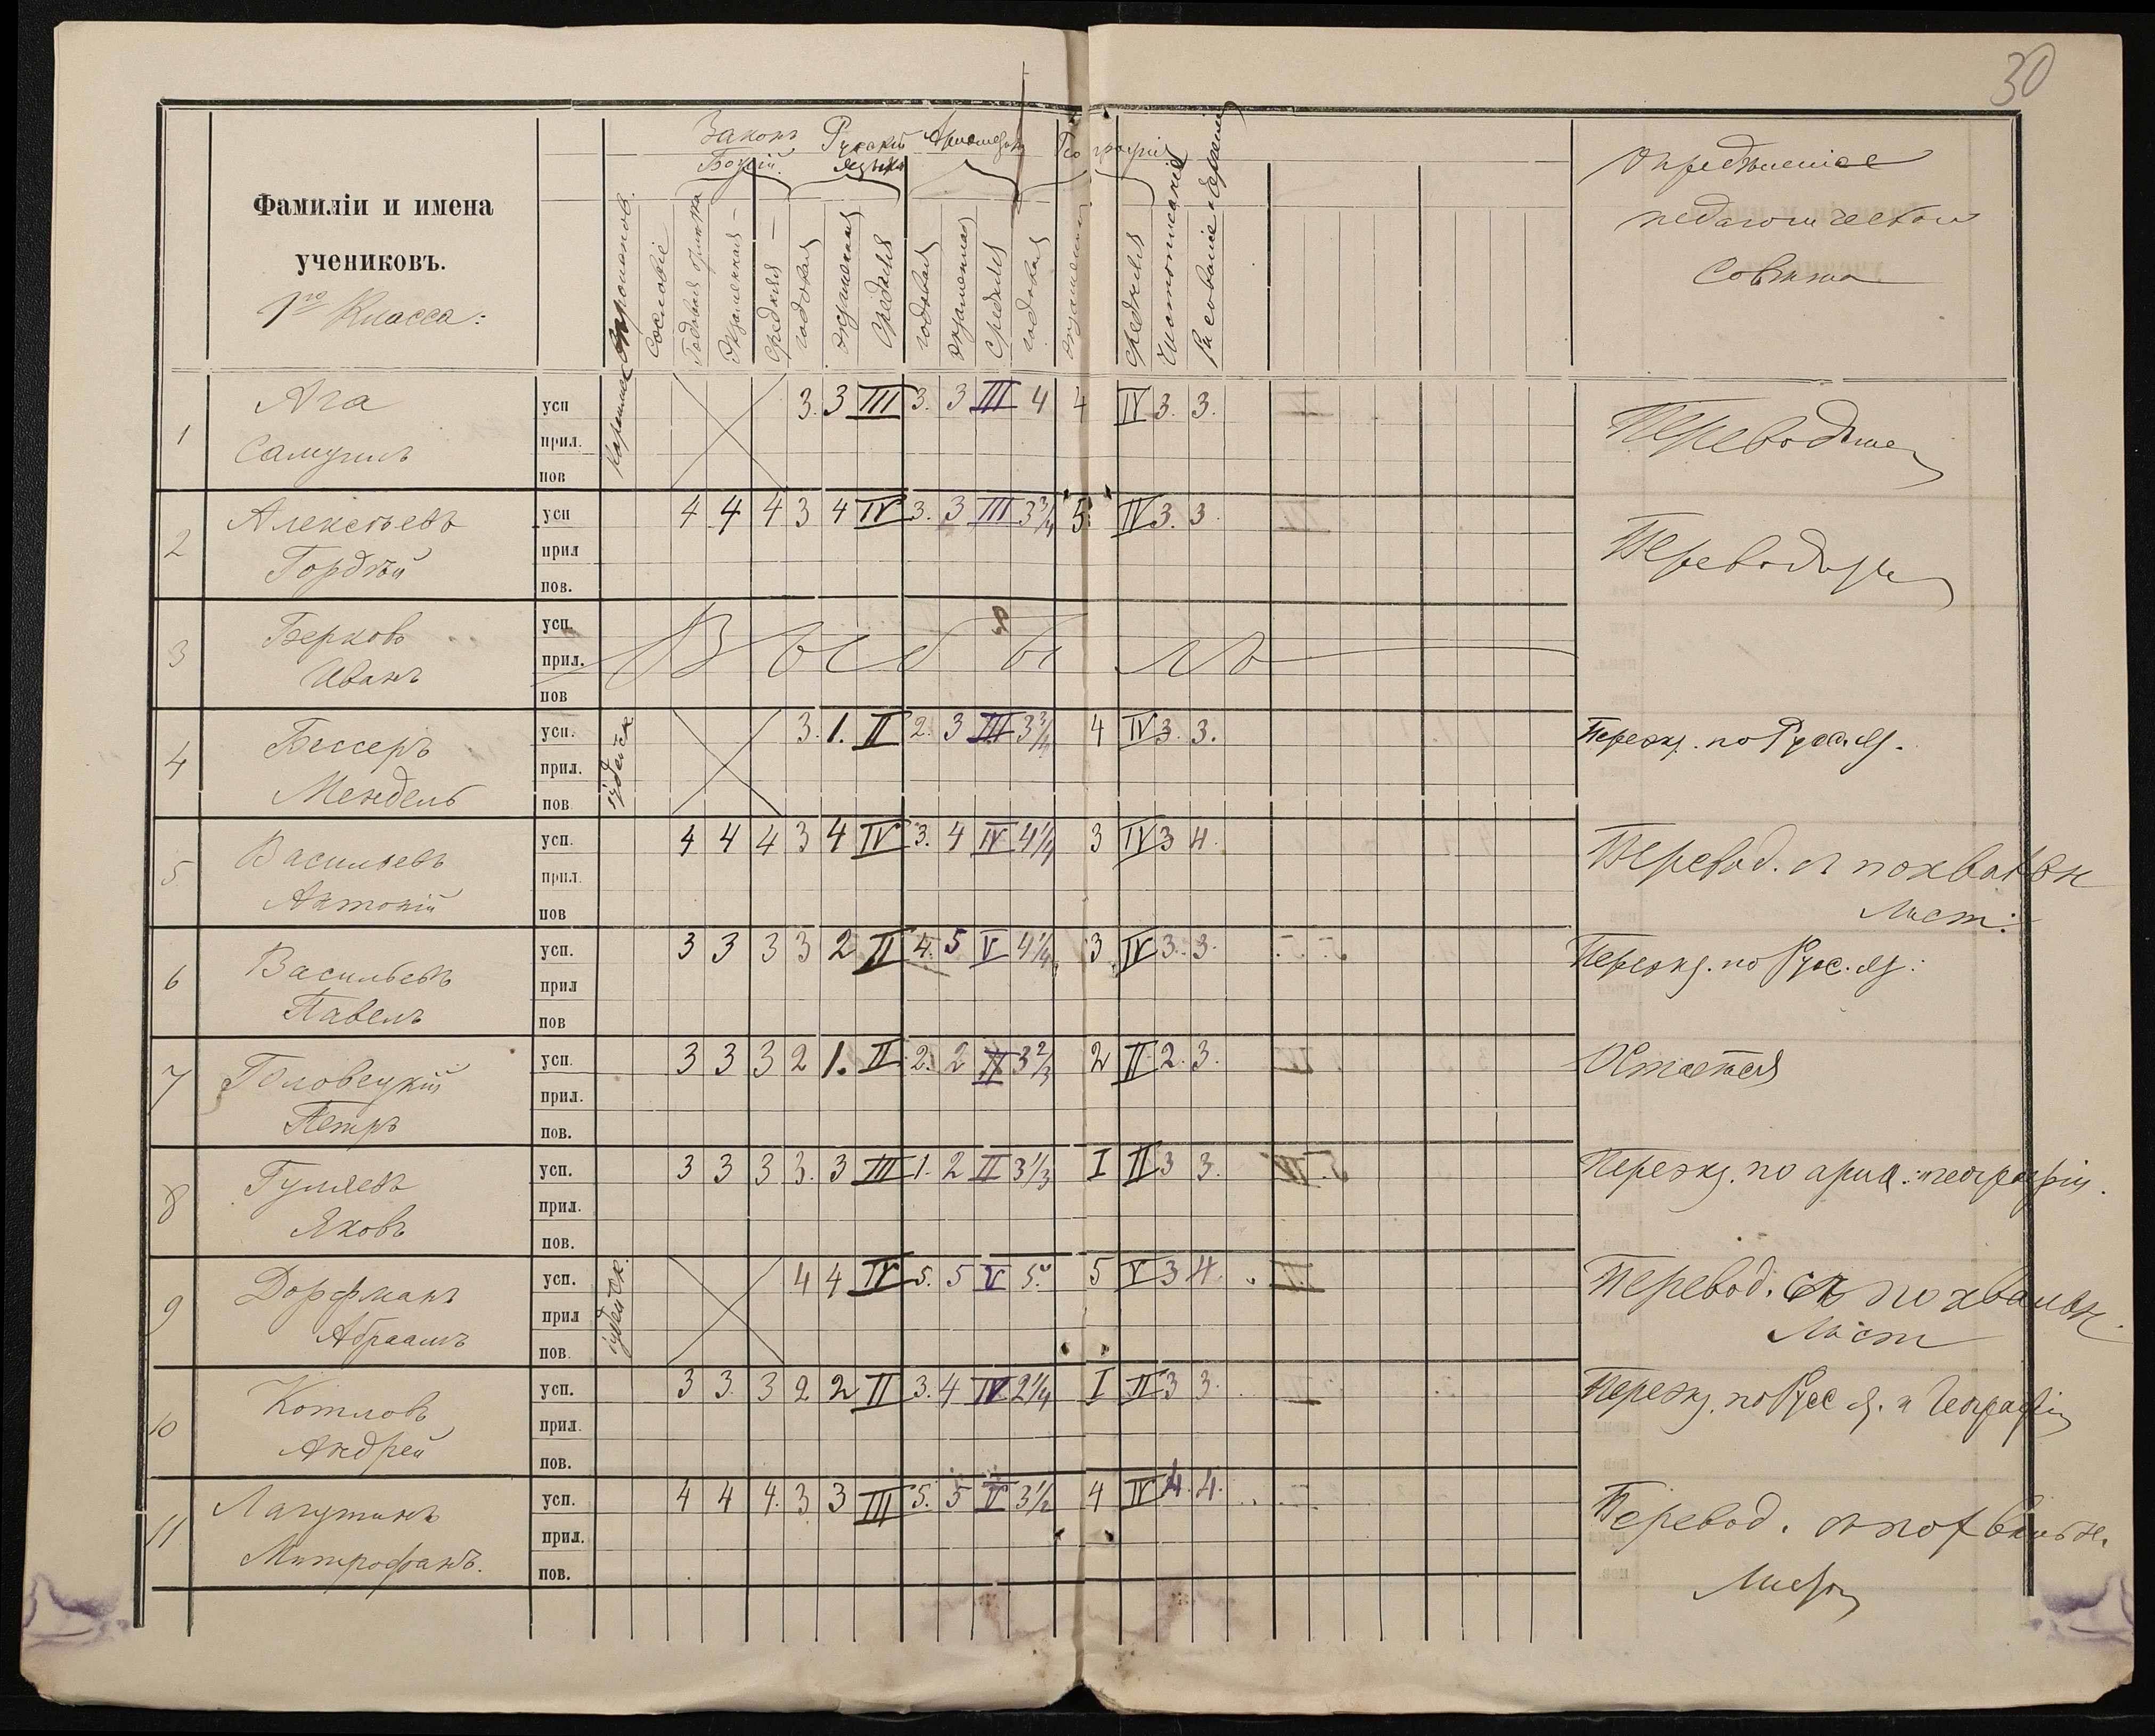 30
Законъ Божій. Русскій языкъ Ариѳметик Географія
Фамиліи и имена
учениковъ.
1го Класса:
Вѣроисповѣд.
Сословіе
Годовая отмѣтка
Экзаменная
Средняя
годовая
экзаменная
Средняя
годовая
экзаменная
Средняя
годовая
экзаменная
средняя
Чистописаніе
Рисованіе и черченіе
Опредѣленіе
педагогическаго
Совѣта
1 Ага усп 3. 3 III 3. 3 III 4 4 IV 3. 3. Переводится
Самуилъ прил. Караимс
пов
2 Алексѣевъ усп 4 4 4 3 4 IV 3. 3 III 3 3/4 5. IV 3. 3. Переводится
Гордѣй прил
пов.
3 Берковъ усп.
Иванъ прил. Выбылъ
пов
4 Бессеръ усп. 3. 1. II 2. 3 III 3 3/4 4 IV 3. 3. Переэкз. по Русс. яз.
Мендель прил. іудейск
пов
5 Васильевъ усп. 4 4 4 3 4 IV 3. 4 IV 4 1/4 3 IV 3 4. Перевод. съ похвальн
Антоній прил. Лист:
пов
6 Васильевъ усп. 3 3 3 3 2 II 4. 5 V 4 1/4 3 IV 3. 3. Переэкз. по Русс. яз:
Павелъ прил
пов
7 Головецкій усп. 3 3 3 2 1. II 2. 2 II 3 2/3 2 II 2. 3. Остается
Петръ прил.
пов.
8 Гуляевъ усп. 3 3 3 3. 3 III 1. 2 II 3 1/3 I II 3 3. Переэкз. по ариѳ. и географіи.
Яковъ прил.
пов.
9 Дорфманъ усп. 4 4 IV 5. 5 V 5. 5 V 3 4. Перевод. съ похвальн.
Абраамъ прил іудейск. Лист
пов.
10 Котловъ усп. 3 3. 3 2 2 II 3. 4 IV 2 1/4 I II 3 3. Переэкз. по Русс. я. и Географіи
Андрей прил.
пов.
11 Лагутинъ усп. 4 4 4. 3 3 III 5. 5 V 3 1/2 4 IV 4. 4. Перевод. съ похвальн.
Митрофанъ. прил. Листом
пов.